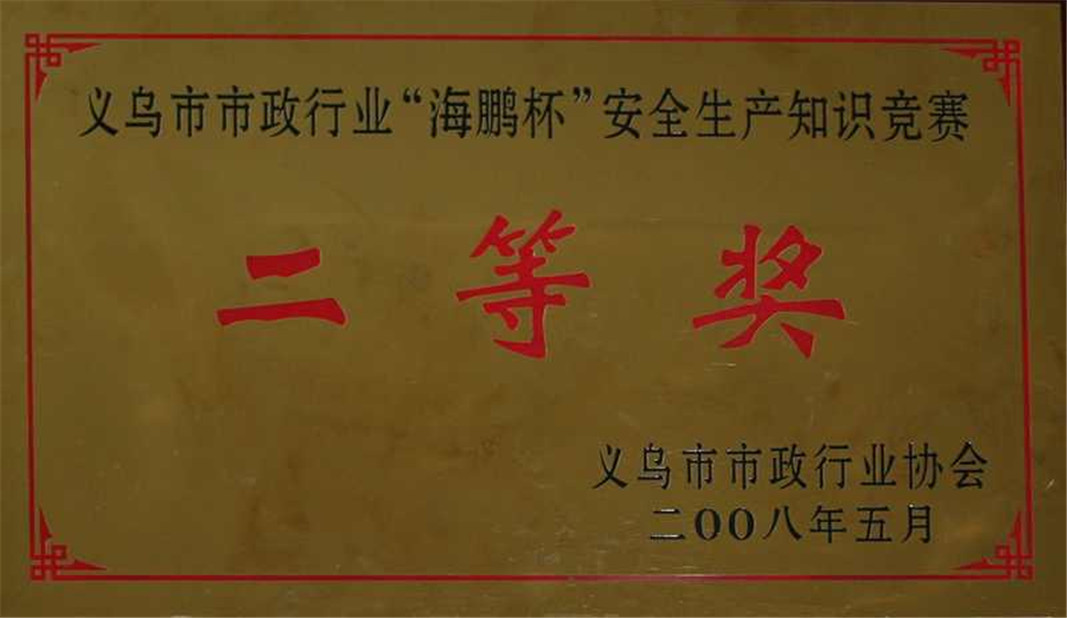 义乌市市政行业“海鹏杯”安全生产知识竞赛
二等奖
义乌市市政行业协会
二00八年五月